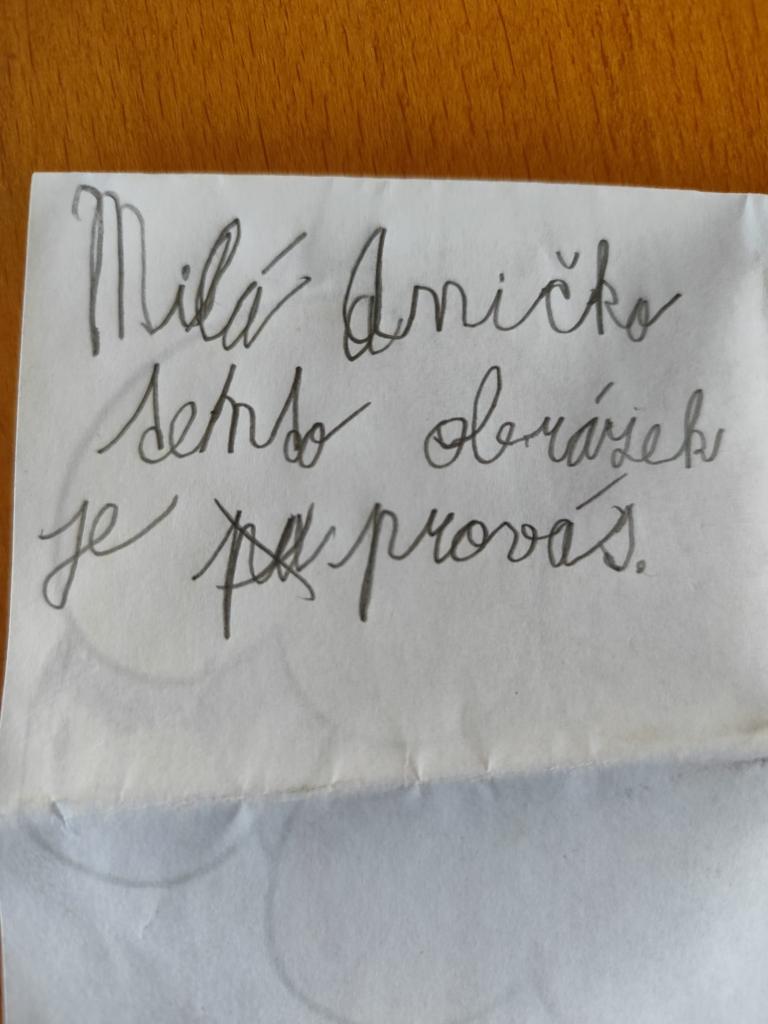 Milá Aničko
tento obrázek
je provás.